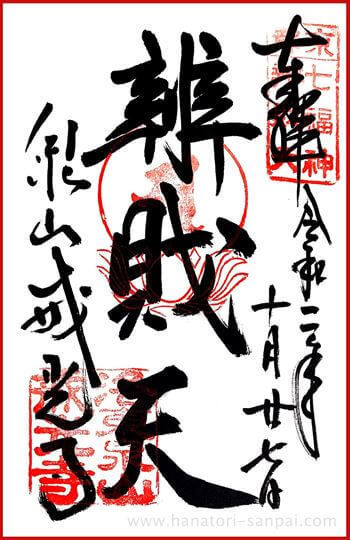 七福神
奉拝 令和二年
十月廿七日
辨財天
泉山戒光寺
www.hanatori-sanpai.com